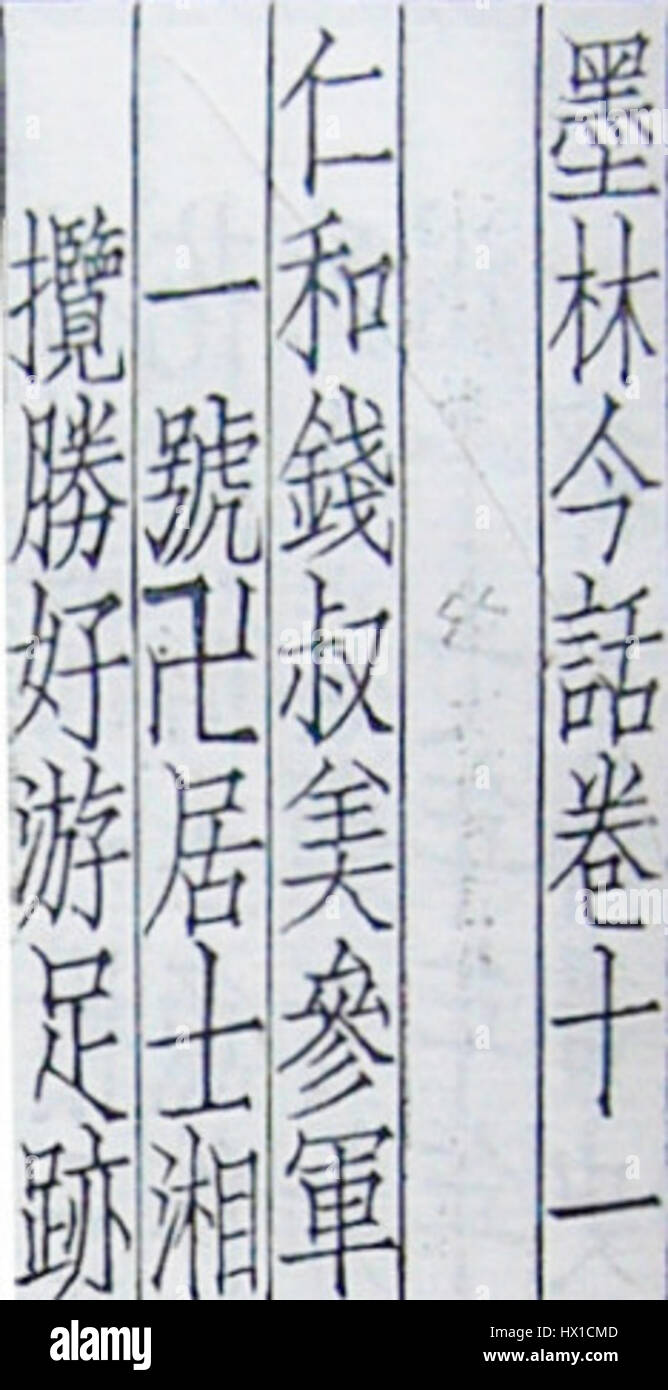 墨林今話卷十一
仁和錢叔美參軍
一號卍居士湘
攬勝好游足跡
alamy
Image ID: HX1CMD
www.alamy.com